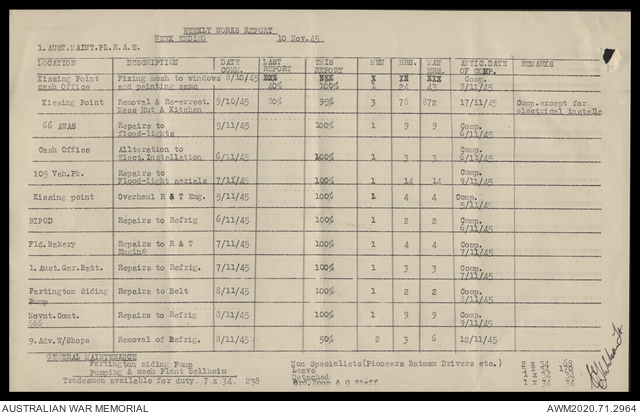 WEEKLY WORKS REPORT
WEEK ENDING 10 Nov.45.
1.AUST.MAINT.PL.R.A.E.
LOCATION DESCRIPTION DATE COMM. LAST REPORT THIS REPORT MEN HRS. MAN HRS. ANTIC.DATE OF COMP. REMARKS
Kissing Point Fixing mesh to windows 8/10/45 Comp.
cash Office and painting same 40% 100% 1 24 43 8/11/45
Kissing Point Removal & Re-errect. 9/10/45 80% 95% 3 78 872 17/11/45 Comp.except for
Mess Hut & Kitchen electrical installn
66 AWAS Repairs to 5/11/45 100% 1 9 9 Comp.
flood-lights 6/11/45
Cash Office Allteration to Comp.
Elect.Installation 6/11/45 100% 1 3 3 6/11/45
105 Veh.Pk. Repairs to Comp.
Flood-light aerials 7/11/45 100% 1 14 14 9/11/45
Kissing point Overhaul R & T Eng. 5/11/45 100% 1 4 4 Comp.
5/11/45
BIPOD Repairs to Refrig 6/11/45 100% 1 2 2 Comp.
6/11/45
Fld.Bakery Repairs to R & T 7/11/45 100% 1 4 4 Comp.
Engine 7/11/45
1.Aust.Gar.Batt. Repairs to Refrig. 7/11/45 100% 1 3 3 Comp.
7/11/45
Partington Siding Repairs to Belt 8/11/45 100% 1 2 2 Comp.
Pump 8/11/45
Movmt.Cont. Repairs to Refrig. 8/11/45 100% 1 9 9 Comp.
666 9/11/45
9.Adv.W/Shops Removal of Refrig. 8/11/45 50% 2 3 6 12/11/45
GENERAL MAINTENANCE
Partington siding Pump Non Specialists(Pioneers Batmen Drivers etc.) 2 x 34 68
Pumping & mech Plant Sellheim Leave 5 x 34 170
Tradesmen available for duty 7 x 34. 238 Detached 1 x 34 34
Ord.Room & Q Staff 1 x 34 34
AUSTRALIAN WAR MEMORIAL
AWM2020.71.2964